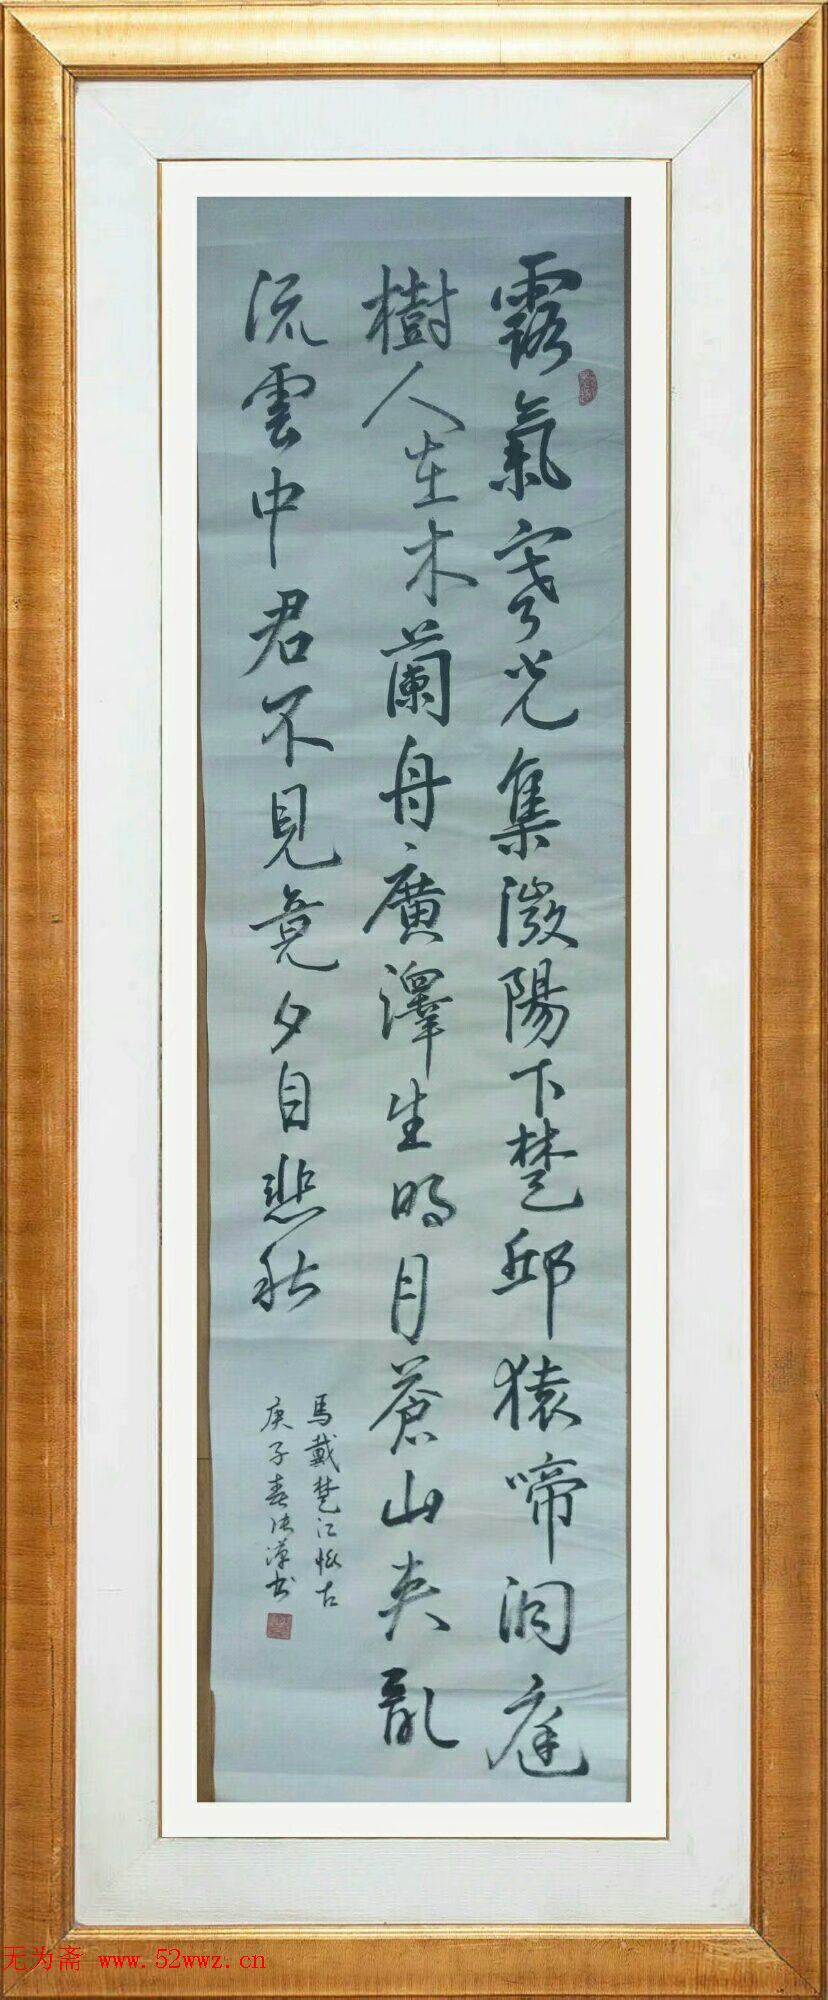 露氣寒光集微陽下楚邱猿啼洞庭
樹人在木蘭舟廣澤生明月蒼山夾亂
流雲中君不見竟夕自悲秋
馬戴楚江懷古
庚子春法漢书
无为斋 www.52wwz.cn